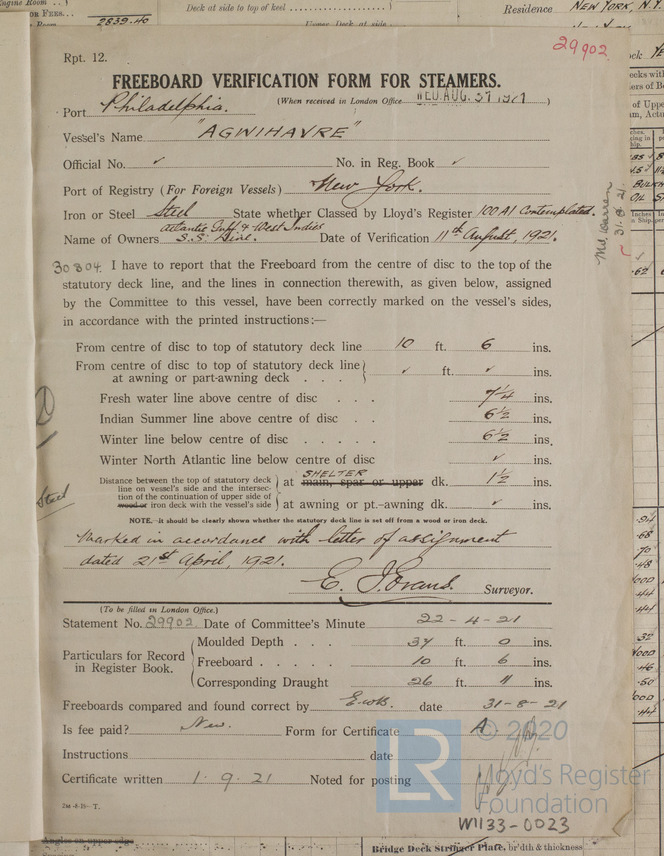 Engine Room . .
OR FEES. . .
2839.40
Deck at side to top of keel
Upper Deck at side
Residence NEW YORK, N.Y.
29902
Rpt. 12.
FREEBOARD VERIFICATION FORM FOR STEAMERS.
Port Philadelphia. (When received in London Office WED. AUG. 31 1921 )
Vessel's Name "AGWIHAVRE"
Official No. ✓ No. in Reg. Book ✓
Port of Registry (For Foreign Vessels) New York.
Iron or Steel Steel State whether Classed by Lloyd's Register 100 A1 Contemplated.
Atlantic Gulf & West Indies
Name of Owners S.S. Line. Date of Verification 11th August, 1921.
30304. I have to report that the Freeboard from the centre of disc to the top of the
statutory deck line, and the lines in connection therewith, as given below, assigned
by the Committee to this vessel, have been correctly marked on the vessel's sides,
in accordance with the printed instructions:—
From centre of disc to top of statutory deck line 10 ft. 6 ins.
From centre of disc to top of statutory deck line
at awning or part-awning deck . . . ✓ ft. ✓ ins.
Fresh water line above centre of disc . . . 7¼ ins.
Indian Summer line above centre of disc . . 6½ ins.
Winter line below centre of disc . . . . . 6½ ins.
Winter North Atlantic line below centre of disc ✓ ins.
Distance between the top of statutory deck
line on vessel's side and the intersec-
tion of the continuation of upper side of
wood or iron deck with the vessel's side
SHELTER
at main, spar or upper dk. 1½ ins.
at awning or pt.-awning dk. ✓ ins.
NOTE.—It should be clearly shown whether the statutory deck line is set off from a wood or iron deck.
Marked in accordance with letter of assignment
dated 21st April, 1921.
E. J. Evans. Surveyor.
(To be filled in London Office.)
Statement No. 29902 Date of Committee's Minute 22-4-21
Particulars for Record
in Register Book.
Moulded Depth . . . 37 ft. 0 ins.
Freeboard . . . . . 10 ft. 6 ins.
Corresponding Draught 26 ft. 11 ins.
Freeboards compared and found correct by date 31-8-21
Is fee paid? New. Form for Certificate A.
Instructions date
Certificate written 1.9.21 Noted for posting
2M-8-19—T.
© 2020
LR
Lloyd's Register
Foundation
W1133-0023
Md. Warren
31.8.21
Steel
Angles on upper edge
Bridge Deck Stringer Plate, br'dth & thickness